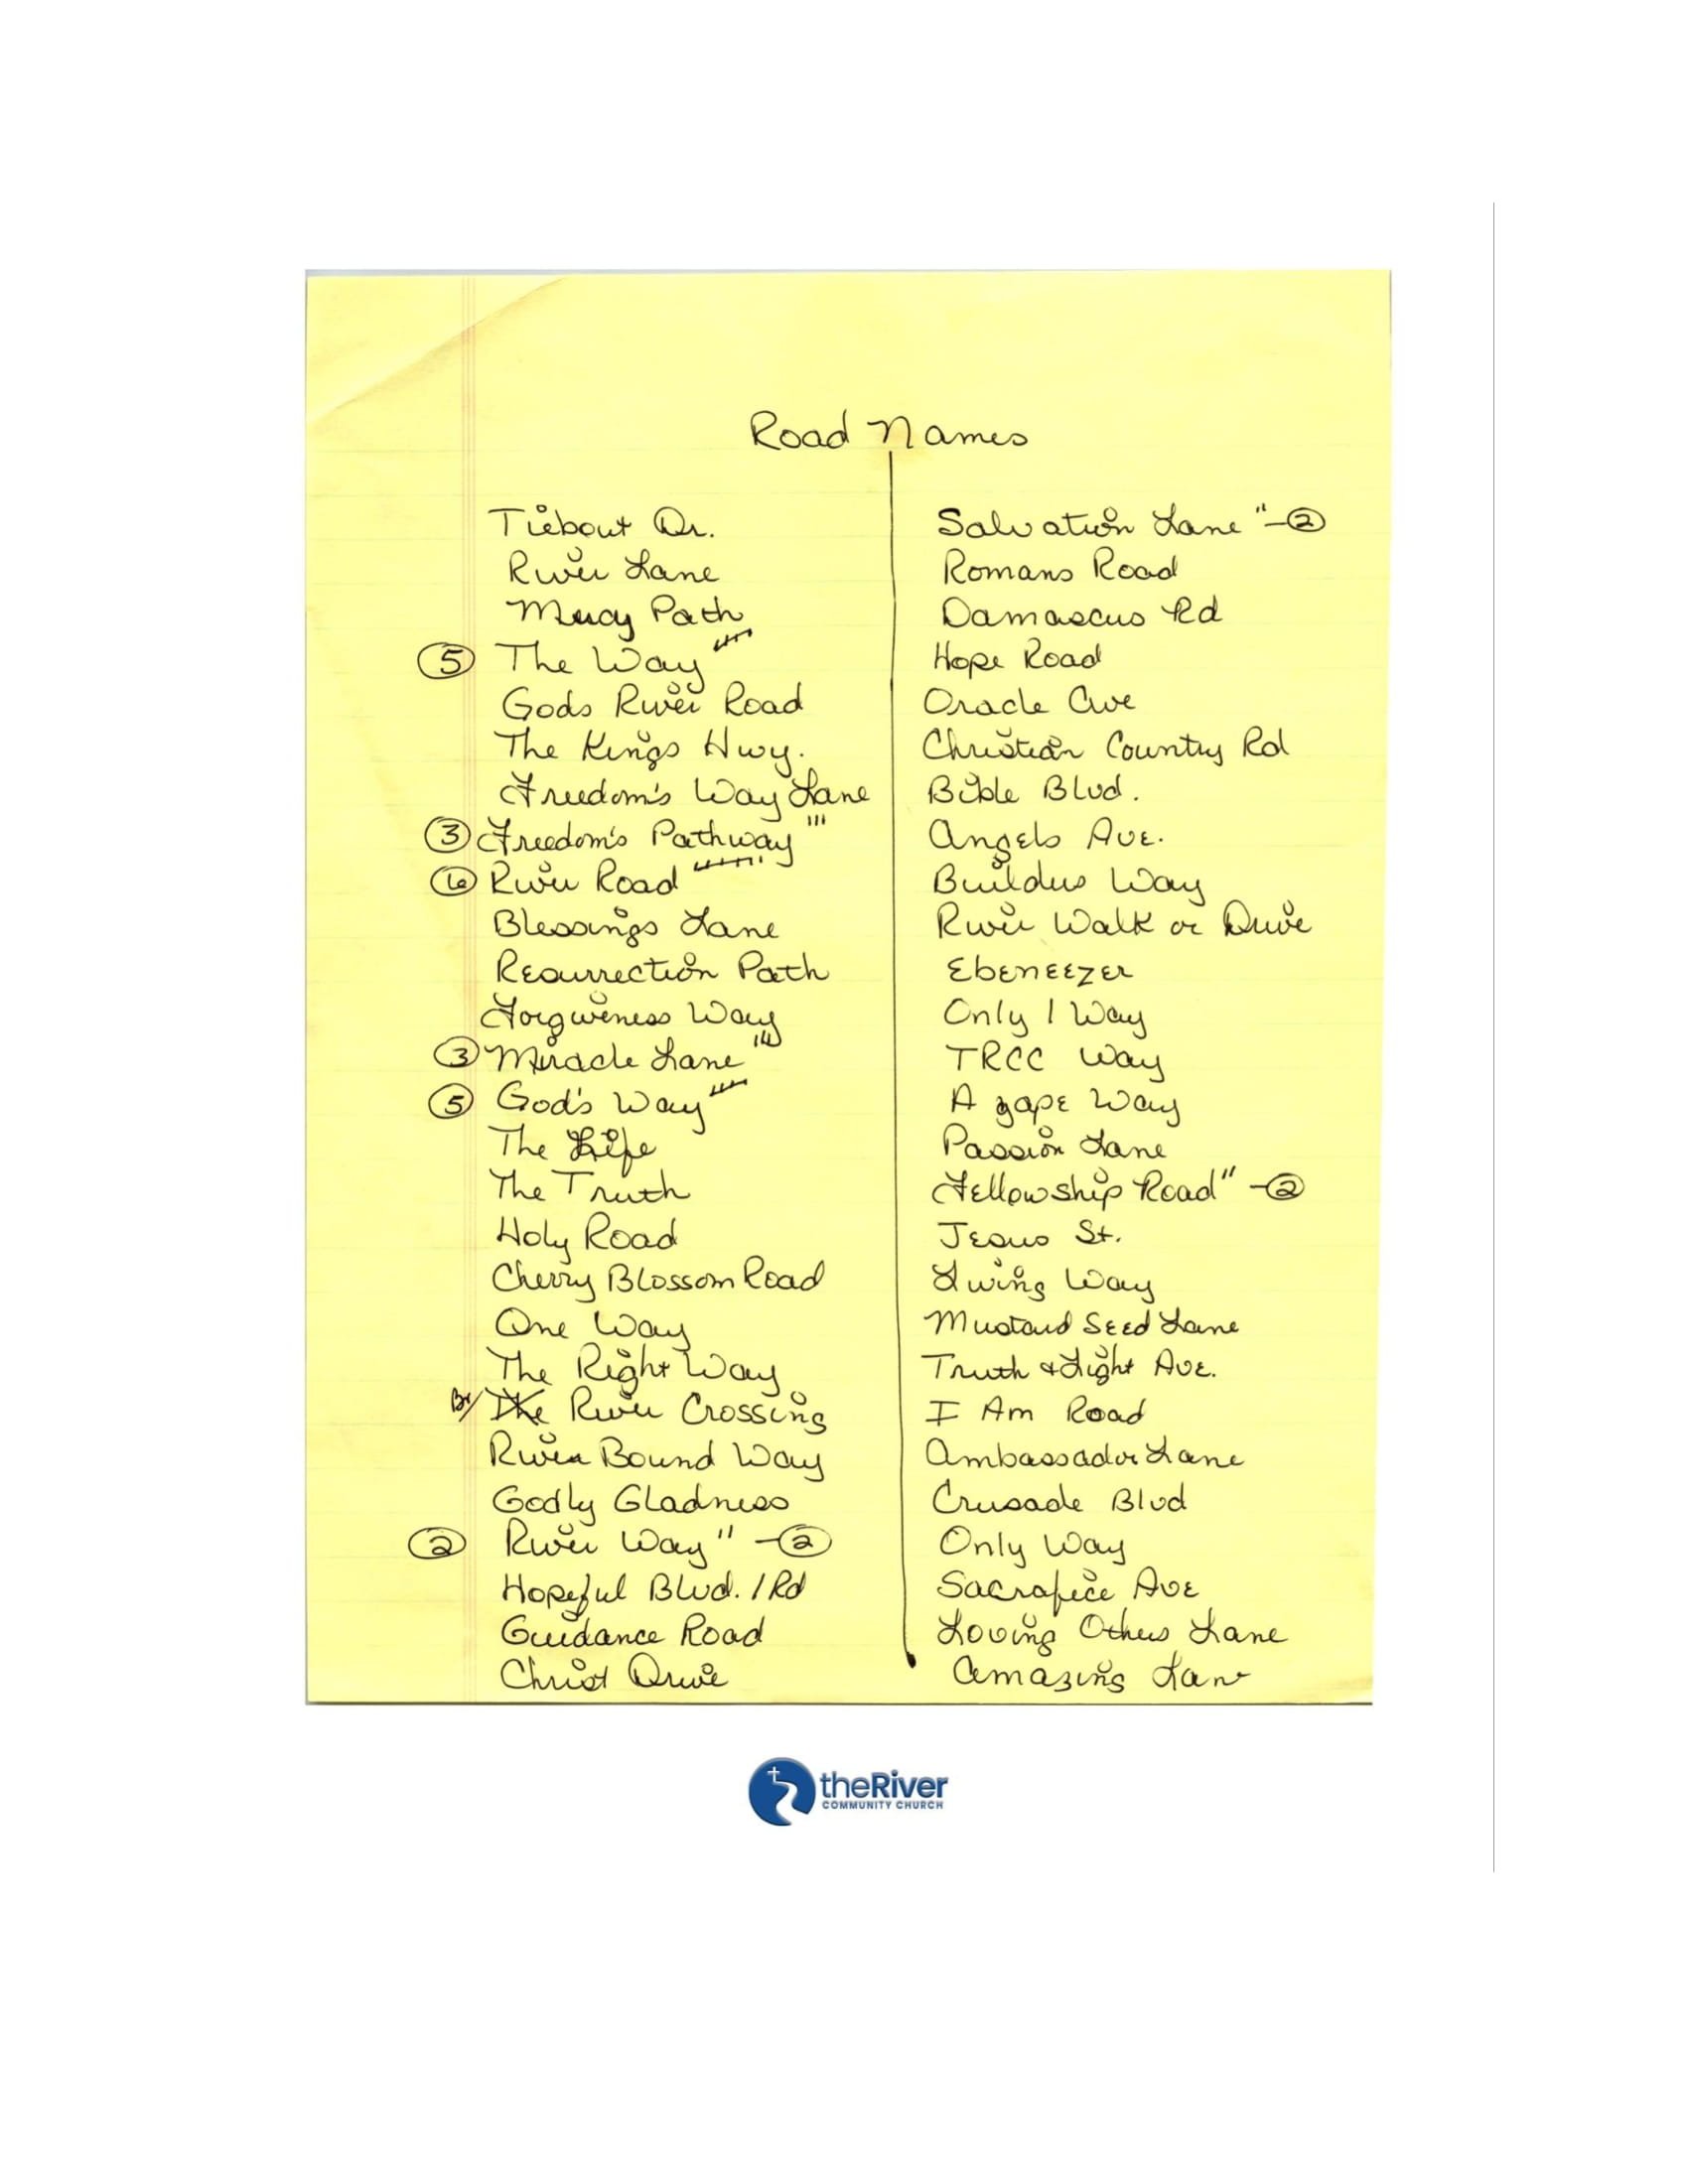 Road Names
Tiebout Dr.
River Lane
Mercy Path
⑤ The Way
Gods River Road
The Kings Hwy.
Freedom's Way Lane
③ Freedom's Pathway
⑥ River Road
Blessings Lane
Resurrection Path
Forgiveness Way
③ Miracle Lane
⑤ God's Way
The Life
The Truth
Holy Road
Cherry Blossom Road
One Way
The Right Way
The River Crossing
River Bound Way
Godly Gladness
② River Way" -②
Hopeful Blvd. / Rd
Guidance Road
Christ Drive
Salvation Lane" -②
Romans Road
Damascus Rd
Hope Road
Oracle Ave
Christian Country Rd
Bible Blvd.
Angels Ave.
Builders Way
River Walk or Drive
Ebeneezer
Only 1 Way
TRCC Way
Agape Way
Passion Lane
Fellowship Road" -②
Jesus St.
Living Way
Mustard Seed Lane
Truth & Light Ave.
I Am Road
Ambassador Lane
Crusade Blvd
Only Way
Sacrafice Ave
Loving Others Lane
Amazing Lane
theRiver
COMMUNITY CHURCH